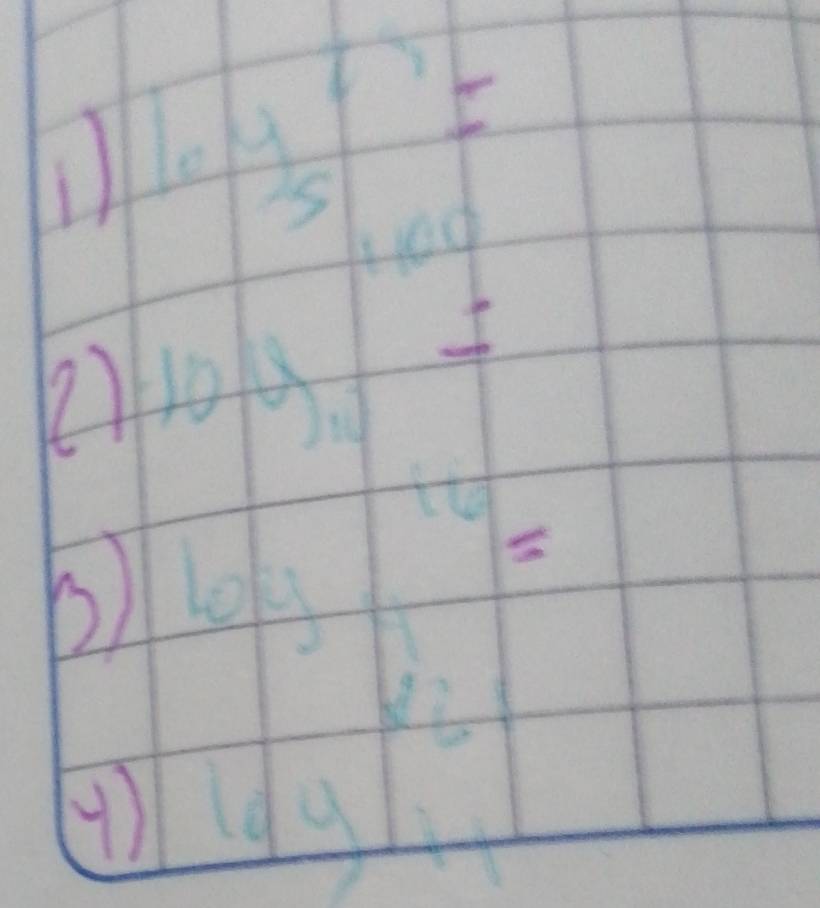 1) log₅ 25 =
2) log₁₀ 100 =
3) log₄ 16 =
4) log₁₁ 121